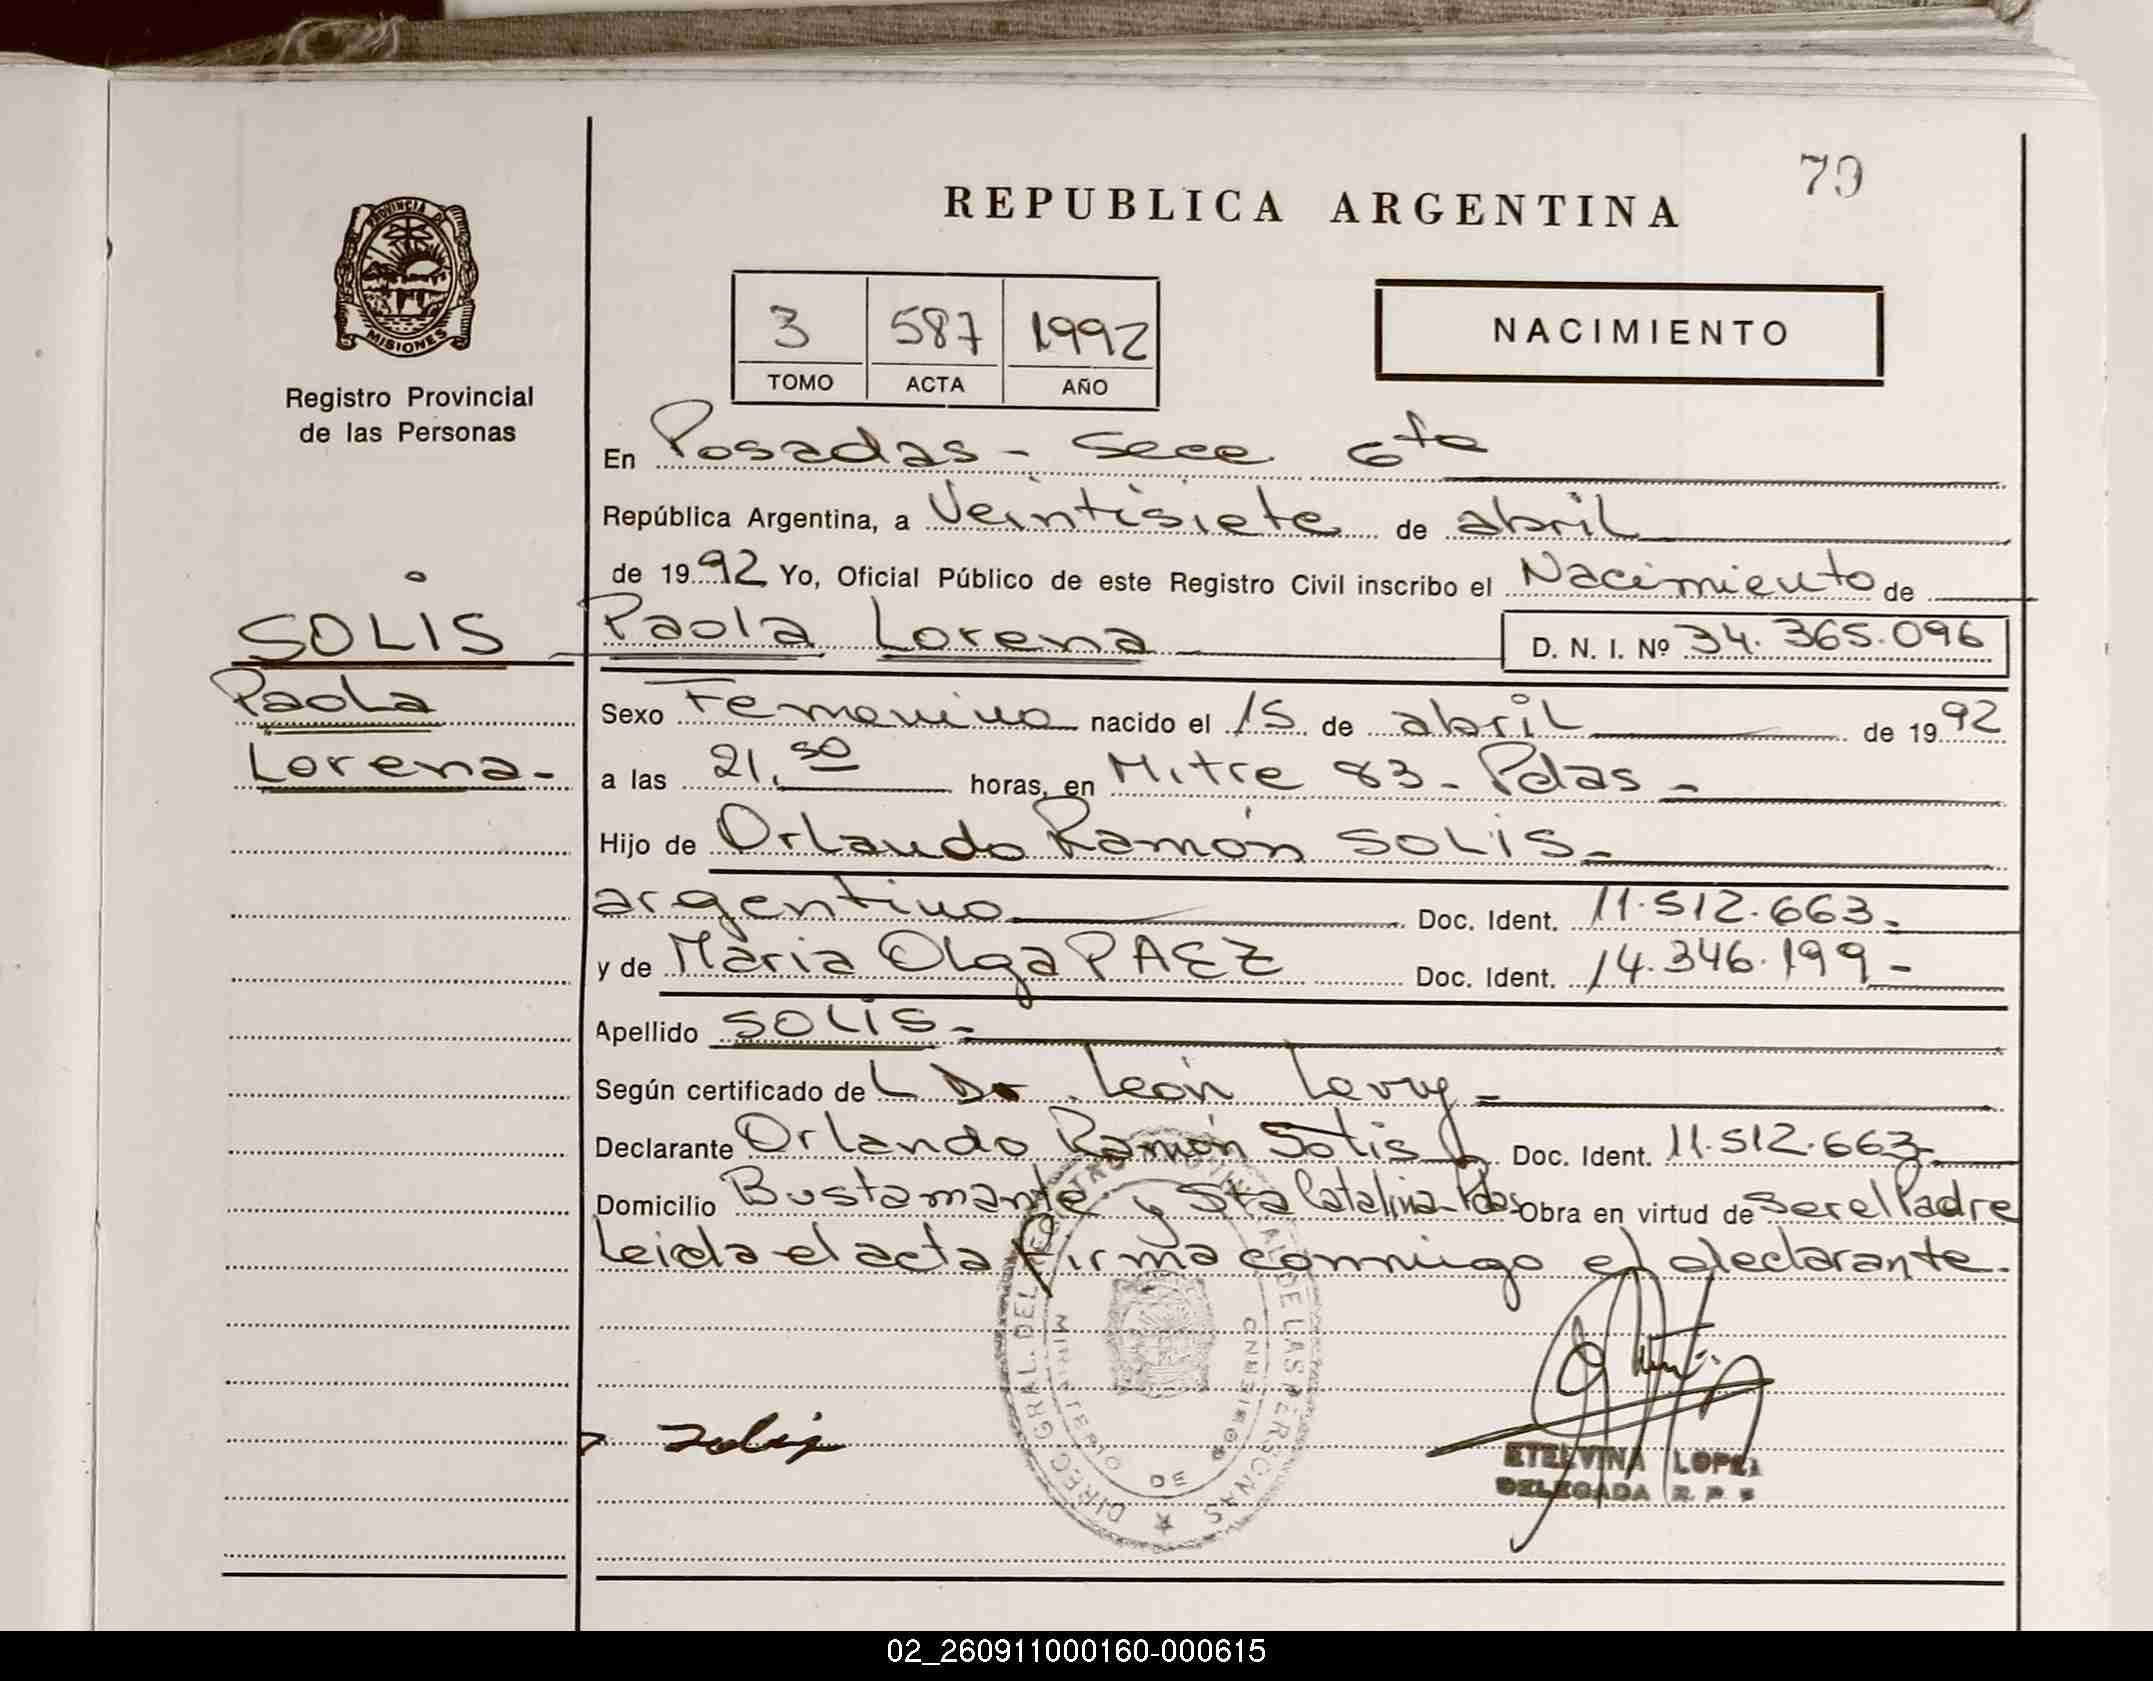 79
REPUBLICA ARGENTINA
PROVINCIA DE
MISIONES
Registro Provincial
de las Personas
3 587 1992
TOMO ACTA AÑO
NACIMIENTO
En Posadas - Secc 6ta
República Argentina, a Veintisiete de abril
de 1992 Yo, Oficial Público de este Registro Civil inscribo el Nacimiento de
SOLIS Paola Lorena D. N. I. Nº 34.365.096
Paola
Lorena-
Sexo Femenino nacido el 15 de abril de 1992
a las 21.50 horas, en Mitre 83 - Pdas -
Hijo de Orlando Ramón SOLIS-
argentino Doc. Ident. 11.512.663-
y de Maria Olga PAEZ Doc. Ident. 14.346.199-
Apellido SOLIS-
Según certificado de L Dr. León Levy=
Declarante Orlando Ramón Solis Doc. Ident. 11.512.663-
Domicilio Bustamante y Sta Catalina-Pdas Obra en virtud de ser el Padre
Leida el acta firma conmigo el declarante.
DIREC. GRAL. DEL REGISTRO PROVINCIAL DE LAS PERSONAS
MINISTERIO DE GOBIERNO
Solis
ETELVINA LOPEZ
DELEGADA R. P. P.
02_260911000160-000615